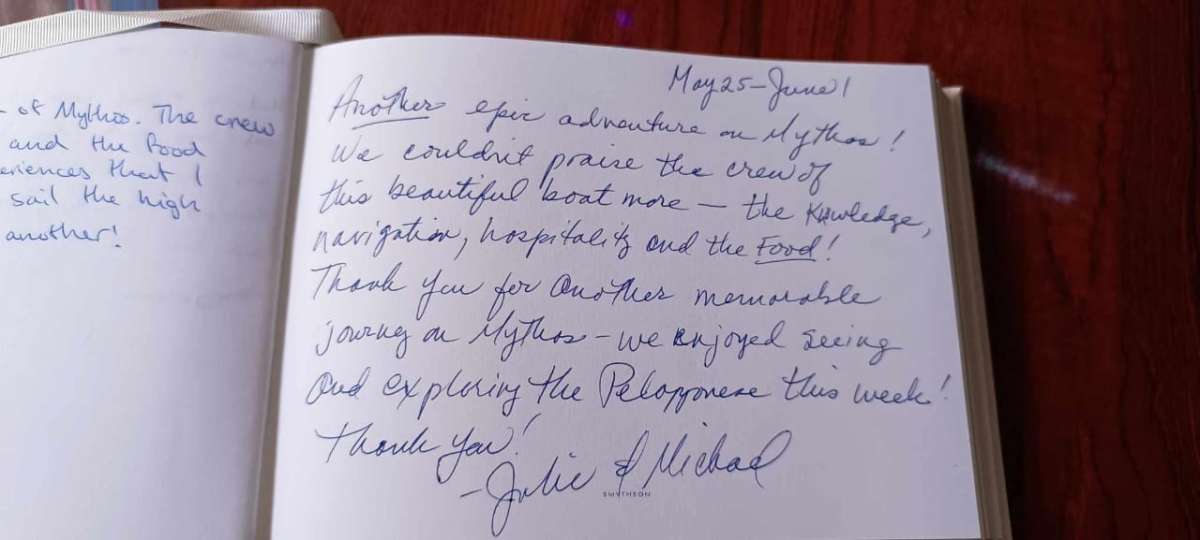 - of Mythos. The crew
and the food
eriences that I
sail the high
another!
May 25-June 1
Another epic adventure on Mythos!
We couldn't praise the crew of
this beautiful boat more — the Knowledge,
navigation, hospitality and the Food!
Thank you for another memorable
journey on Mythos - we enjoyed seeing
and exploring the Peloponnese this week!
Thank you!
- Julie & Michael
SMYTHSON